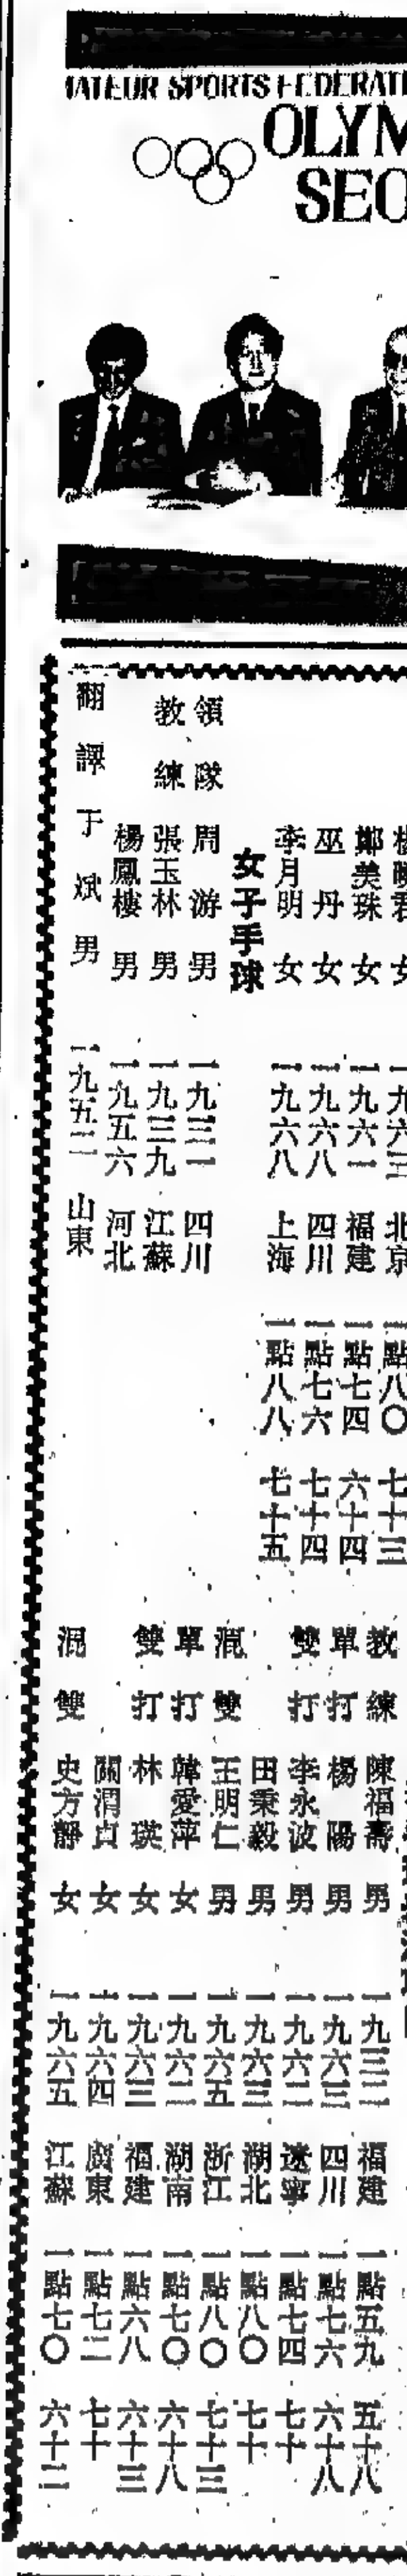 MATEUR SPORTS FEDERATI
OLYM
SEO
鄭美珠 女 一九六一 福建 一點七四 六十四
巫丹 女 一九六八 四川 一點七六 七十四
李月明 女 一九六八 上海 一點八八 七十五
女子手球
領隊 周游 男 一九三一 四川
教練 張玉林 男 一九三九 江蘇
楊鳳樓 男 一九五六 河北
翻譯 于斌 男 一九五二 山東
教練 陳福壽 男 一九三二 福建 一點五九 五十八
單打 楊陽 男 一九六三 四川 一點七六 六十八
雙打 李永波 男 一九六二 遼寧 一點七四 七十
田秉毅 男 一九六三 湖北 一點八〇 七十
混雙 王明仁 男 一九六五 浙江 一點八〇 七十三
單打 韓愛萍 女 一九六二 湖南 一點七〇 六十八
雙打 林瑛 女 一九六三 福建 一點六八 六十三
關渭貞 女 一九六四 廣東 一點七二 七十
混雙 史方靜 女 一九六五 江蘇 一點七〇 六十二